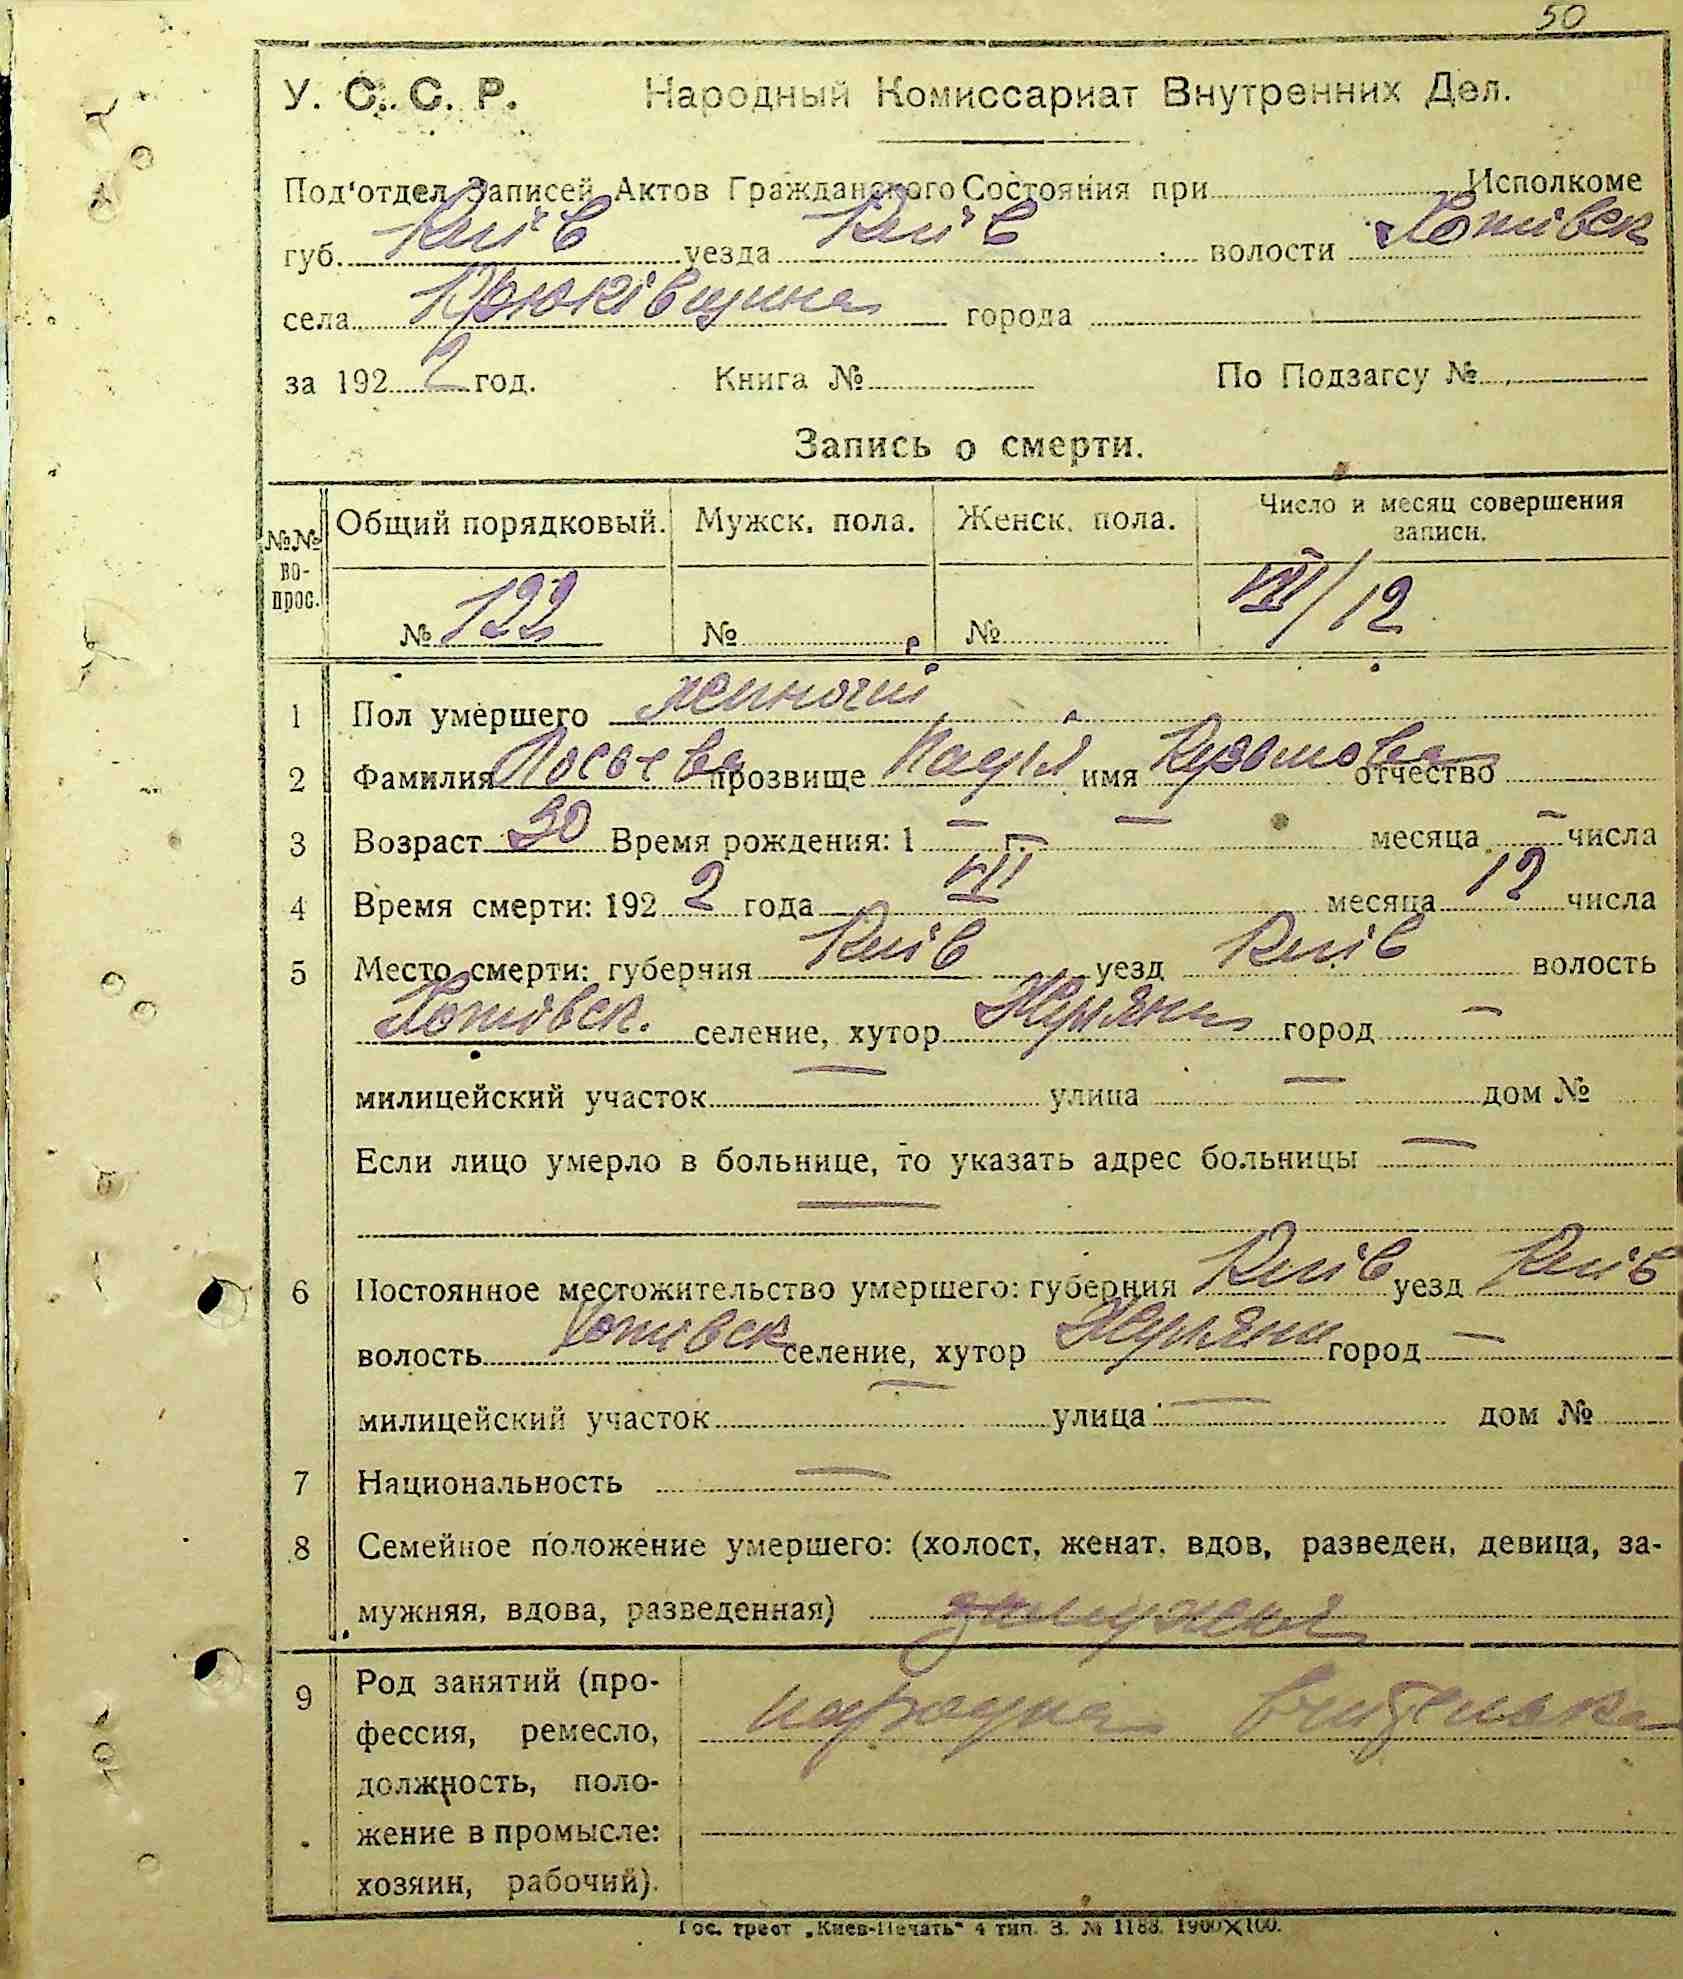 50
У. С. С. Р. Народный Комиссариат Внутренних Дел.
Под'отдел Записей Актов Гражданского Состояния при Исполкоме
губ. Київ уезда Київ волости Хотівск
села Крюківщина города
за 1922 год. Книга № По Подзагсу №
Запись о смерти.
№№ во-прос. Общий порядковый. Мужск. пола. Женск. пола. Число и месяц совершения записи.
№ 122 № № VII/12
1 Пол умершего жиночий
2 Фамилия прозвище Надія имя Кузьмовна отчество
3 Возраст 30 Время рождения: 1 — г. — месяца — числа
4 Время смерти: 1922 года VII месяца 12 числа
5 Место смерти: губерния Київ уезд Київ волость
Хотівск. селение, хутор Жуляни город —
милицейский участок — улица — дом №
Если лицо умерло в больнице, то указать адрес больницы —
—
6 Постоянное местожительство умершего: губерния Київ уезд Київ
волость Хотівск селение, хутор Жуляни город —
милицейский участок — улица — дом №
7 Национальность —
8 Семейное положение умершего: (холост, женат, вдов, разведен, девица, за-
мужняя, вдова, разведенная) замужня
9 Род занятий (про-
фессия, ремесло, народня вчителька
должность, поло-
жение в промысле:
хозяин, рабочий).
Гос. трест „Киев-Печать" 4 тип. З. № 1188. 1900×100.